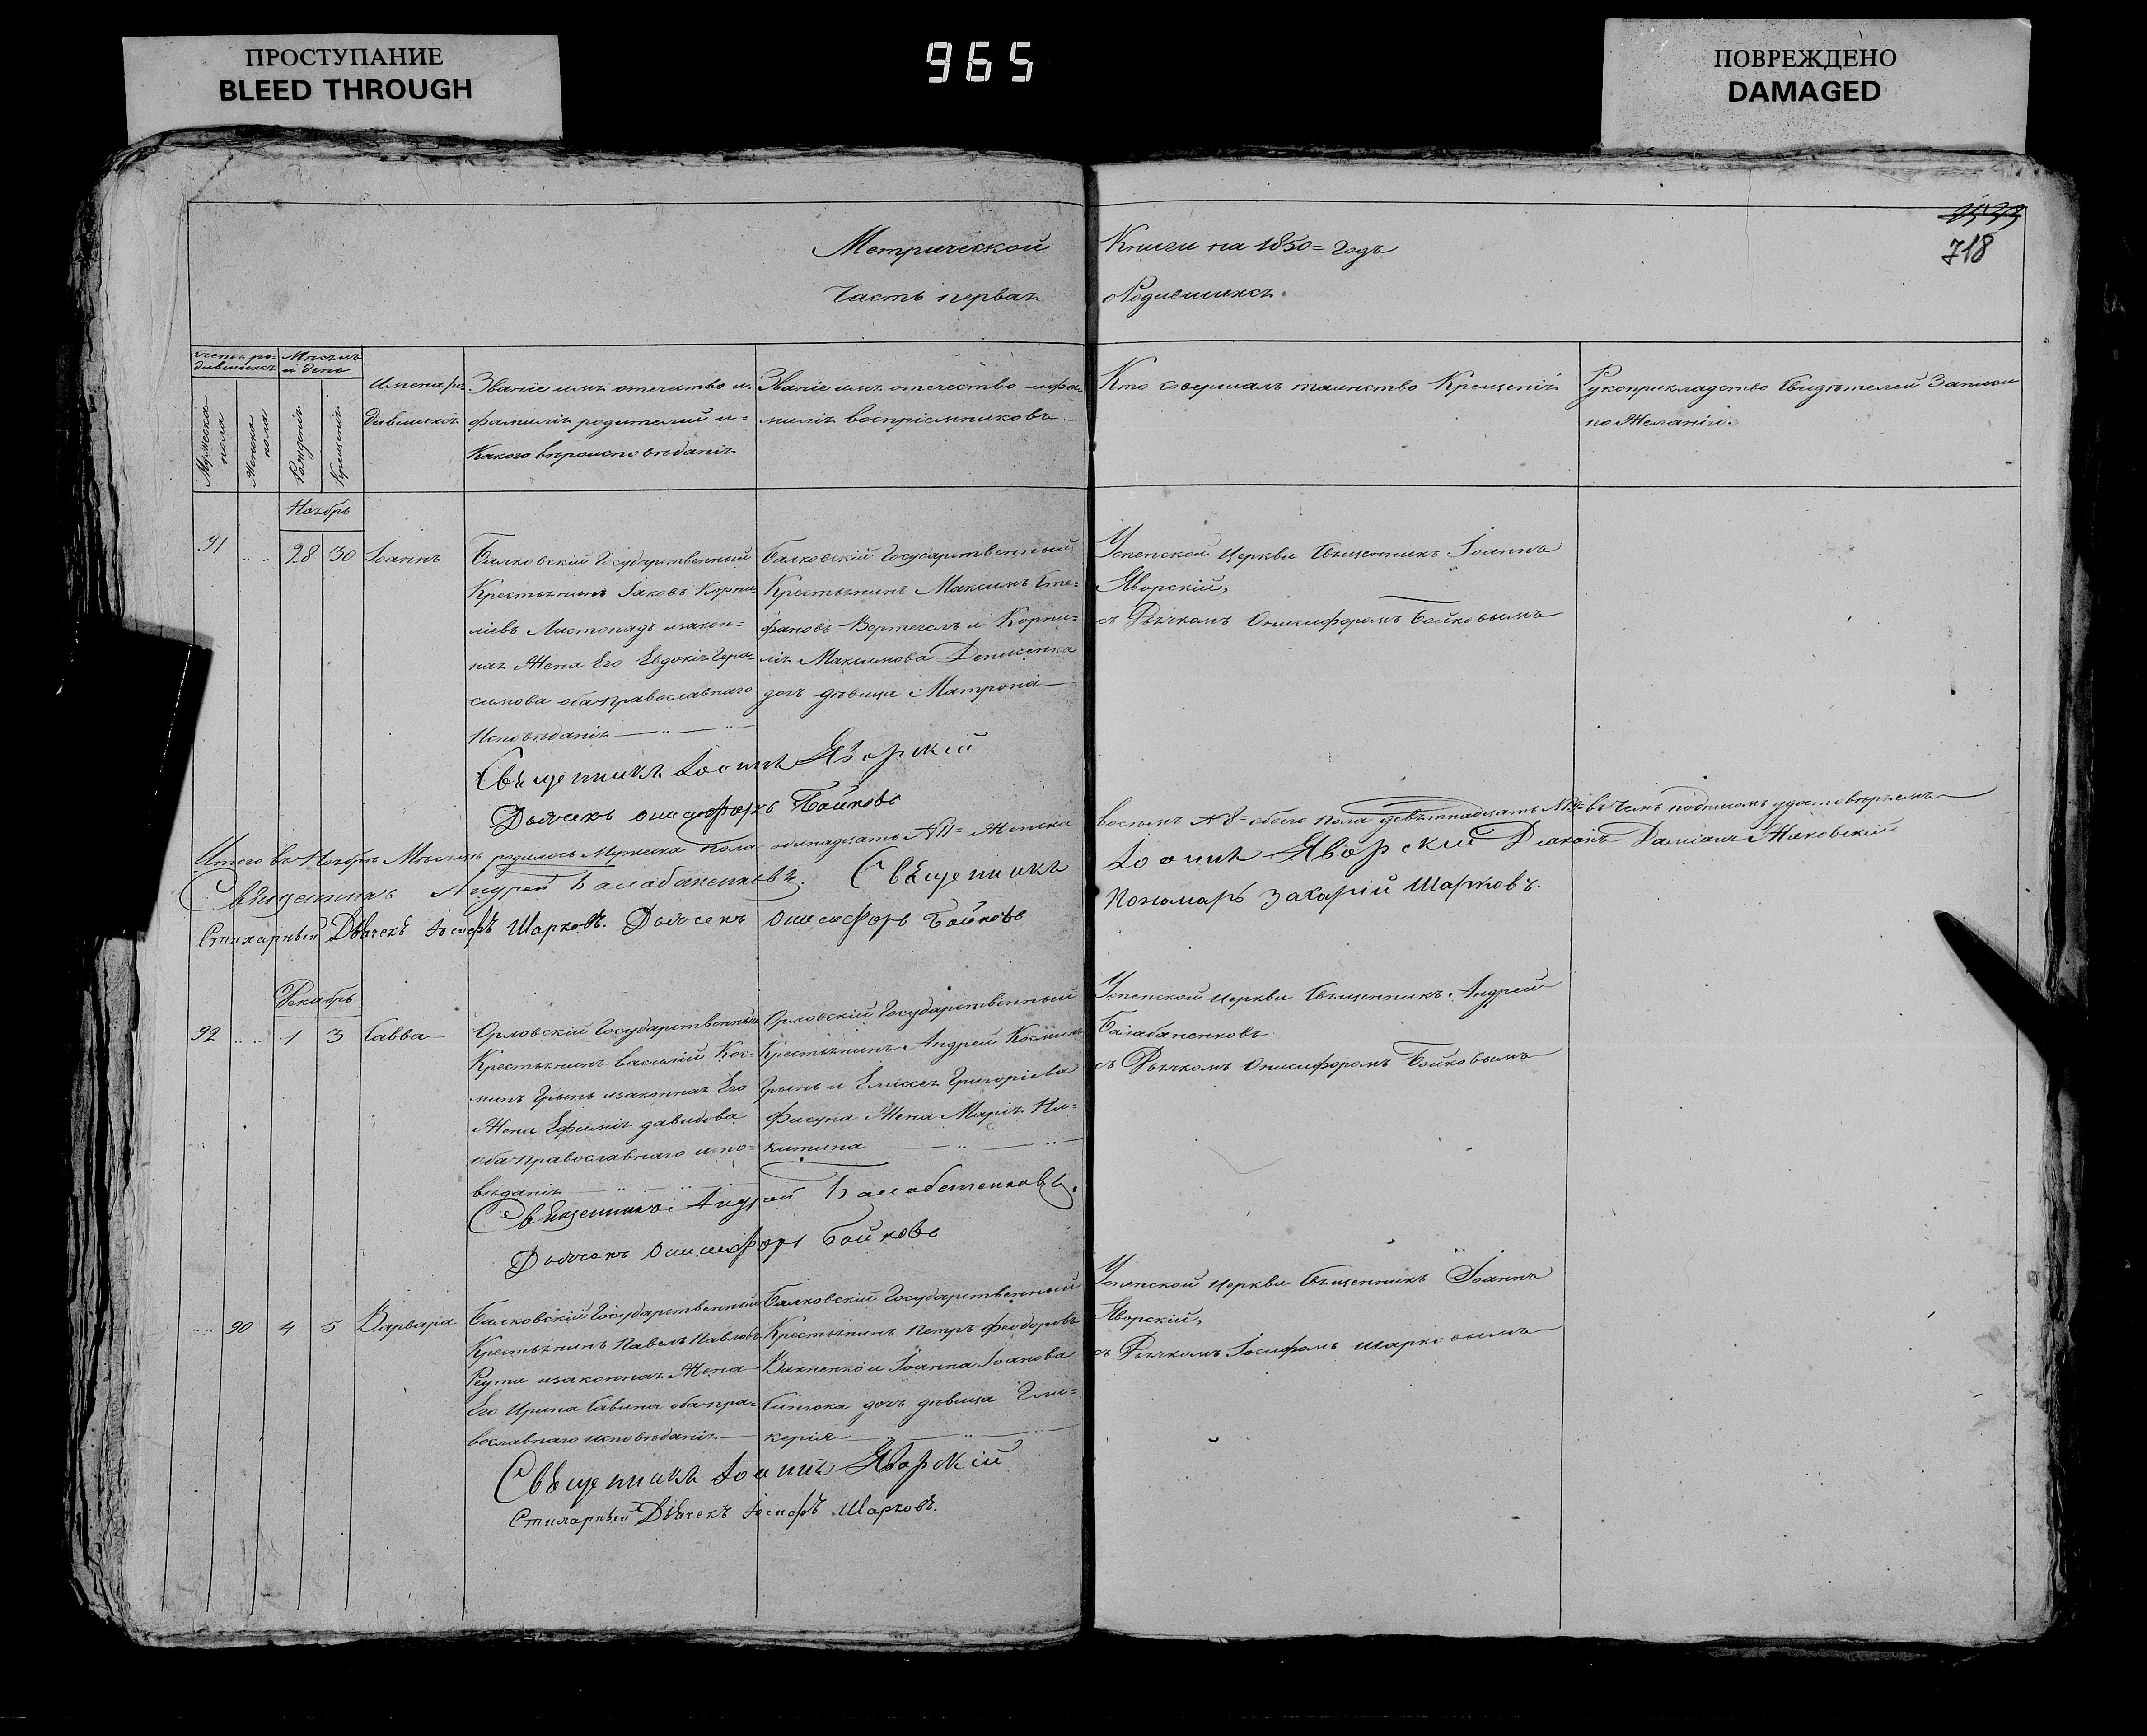 ПРОСТУПАНИЕ
BLEED THROUGH
965
ПОВРЕЖДЕНО
DAMAGED
718
Метрической Книги на 1850= годъ
Часть первая Родившихся.
Мѣсяцъ
и день
Мужеска
пола
Женска
пола
Рожденія
Крещенія
Имена ро-
дившихся
Званіе имя отечество и
фамилія родителей и=
Какого вѣроисповѣданія
Званіе имя отечество и фа-
милія воспріемниковъ
Кто совершалъ таинство Крещенія
Рукоприкладство Свидѣтелей Записи
по Желанію.
Ноябрь
91
28
30
Іоаннъ
Балковскій Государственный
Крестьянинъ Іаковъ Корни-
ліевъ Листопадъ изакон=
ная Жена Его Евдокія Гера-
симова оба православнаго
Исповѣданія
Балковскій Государственный
Крестьянинъ Максимъ Сте=
фановъ Вертегелъ и Корни=
лія Максимова Денисенка
дочь дѣвица Матрона
Успенской Церкви Священникъ Іоаннъ
Яворскій,
съ Дьячкомъ Онисифоромъ Бойковымъ
Священникъ Іоаннъ Яворскій
Дьячекъ Онисифоръ Бойковъ
Итого въ Ноябрѣ Мѣсяцѣ родилось Мужеска пола одинадцать №11= Женска восемъ №8= обоего пола девятнадцать №19= въ чемъ подписомъ удостовѣряемъ
Священникъ Андрей Балабаненковъ. Священникъ Іоаннъ Яворскій Діаконъ Даміанъ Маковскій
Стихарный Дьячекъ Іосифъ Шарковъ. Дьячекъ Онисифоръ Бойковъ Пономарь Захарій Шарковъ.
Декабрь
92
1
3
Савва
Орловскій Государственный
Крестьянинъ Василій Кос-
минъ Грынь изаконная Его
Жена Ефимія давидова
оба православнаго испо=
вѣданія
Орловскій Государственный
Крестьянинъ Андрей Косминъ
Грынь и Елисея Григоріева
Фисуна Жена Марія Ни=
китина
Успенской Церкви Священникъ Андрей
Балабаненковъ
съ Дьячкомъ Онисифоромъ Бойковымъ
Священникъ Андрей Балабаненковъ.
Дьячекъ Онисифоръ Бойковъ
90
4
5
Варвара
Балковскій Государственный
Крестьянинъ Павелъ Павловъ
Реута изаконная Жена
Его Ирина Савина оба пра=
вославнаго исповѣданія
Балковскій Государственный
Крестьянинъ Петръ Феодоровъ
и Іоанна Іоанова
дочь дѣвица Гли=
керія
Успенской Церкви Священникъ Іоаннъ
Яворскій,
съ Дьячкомъ Іосифомъ Шарковымъ
Священникъ Іоаннъ Яворскій
Стихарный Дьячекъ Іосифъ Шарковъ.